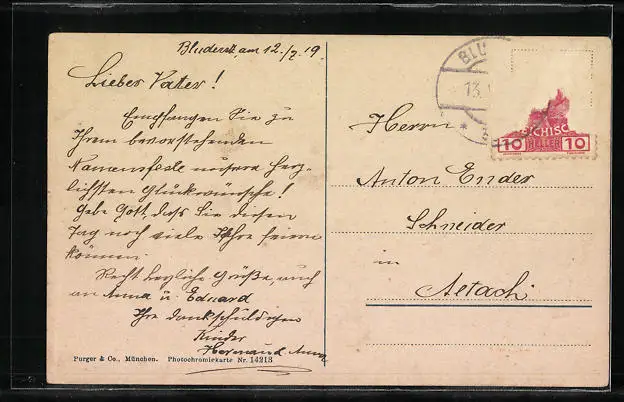 Bludenz, am 12./7.19.
Lieber Vater!
Empfangen Sie zu
Ihrem bevorstehenden
Namensfeste unsere herz-
lichsten Glückwünsche!
Gebe Gott, dass Sie diesen
Tag noch viele Jahre feiern
können.
Recht herzliche Grüße, auch
an Anna u. Eduard
Ihre dankschuldigen
Kinder
Hermann u. Anna
Purger & Co., München. Photochromiekarte Nr. 14213
BLU
13.
SICHISC
10 HELLER 10
Herrn
Anton Ender
Schneider
in
Altach